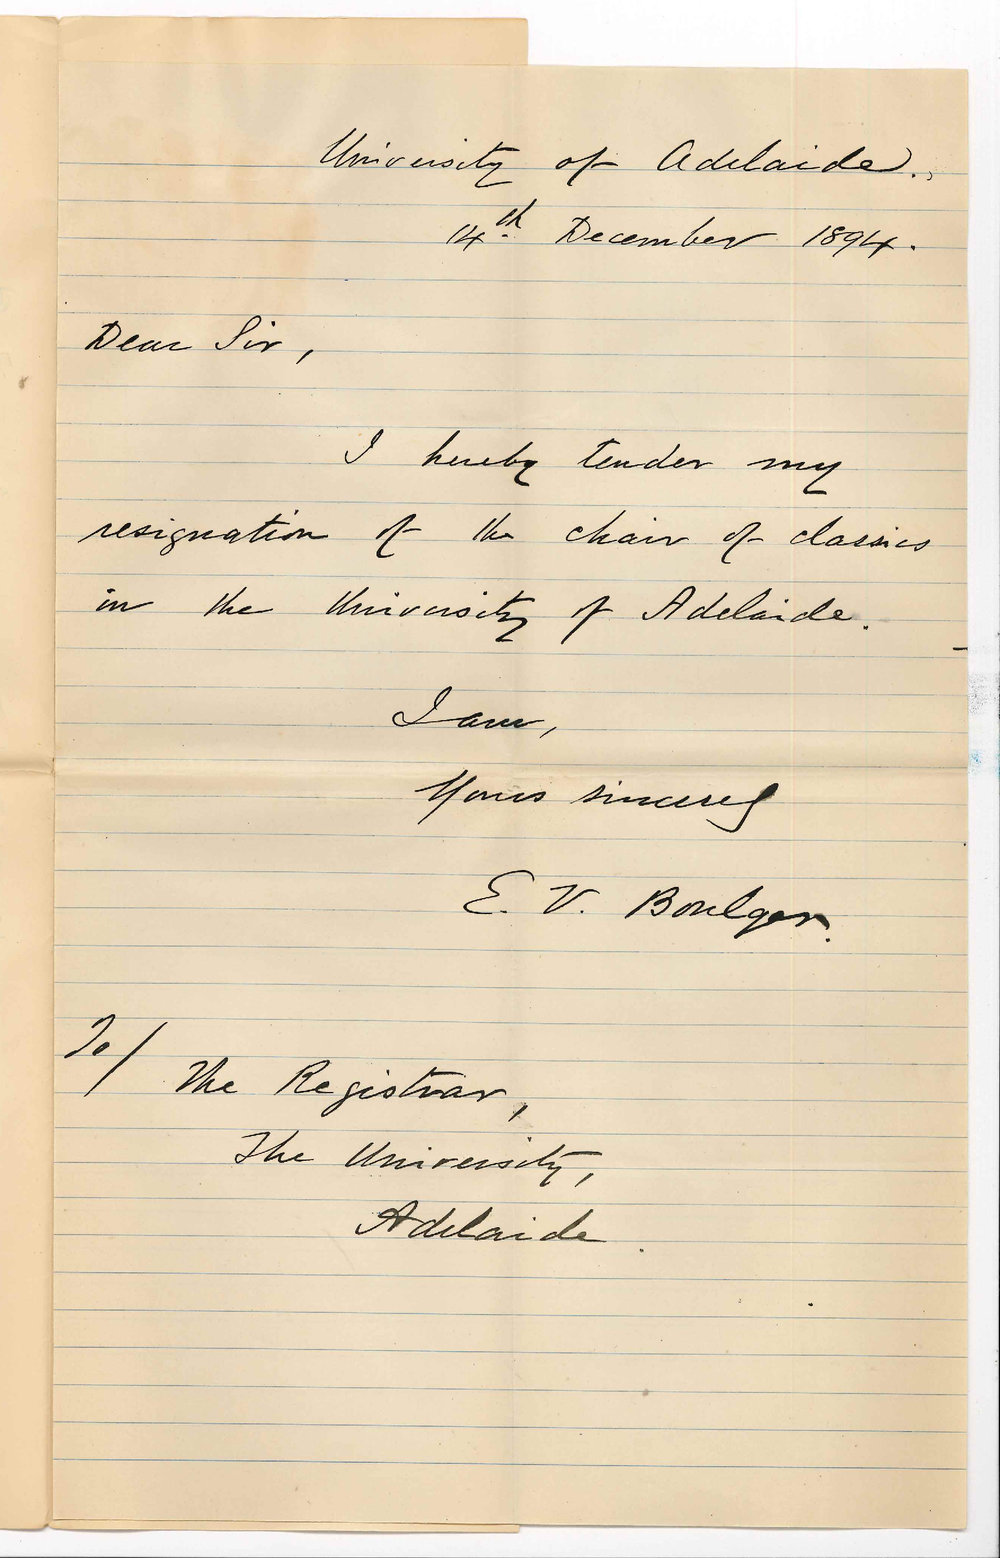 University of Adelaide.,
14th December 1894.
Dear Sir,
I hereby tender my
resignation of the chair of classics
in the University of Adelaide.
I am,
Yours sincerely
E. V. Boulger.
To/
The Registrar,
The University,
Adelaide.